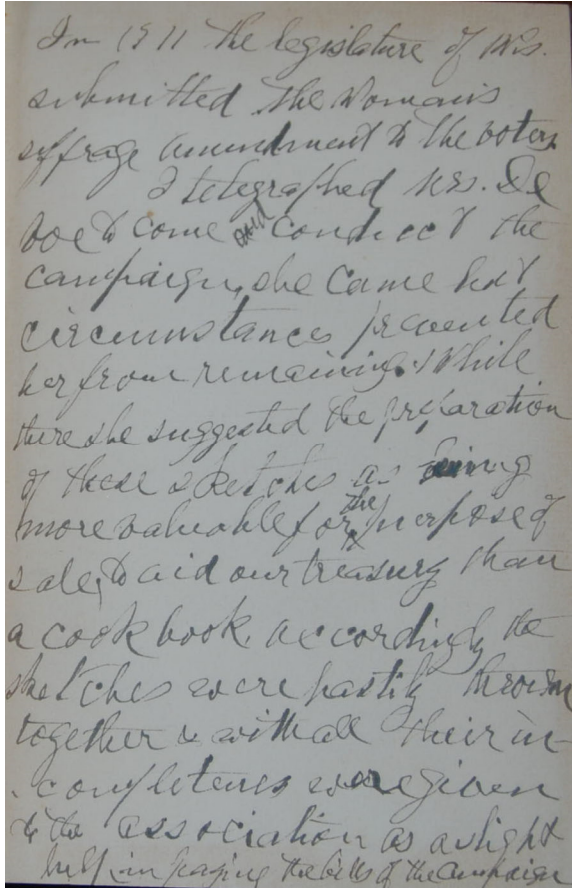 In 1911 the legislature of Wis.
submitted the Woman's
suffrage amendment to the voters
I telegraphed Mrs. De
Voe to come and conduct the
campaign, she came but
circumstances prevented
her from remaining. While
there she suggested the preparation
of these sketches as being
more valuable for the purpose of
sale, to aid our treasury than
a cook book, accordingly the
sketches were hastily thrown
together & with all their in-
completeness were given
to the association as a slight
help in paying the bills of the campaign